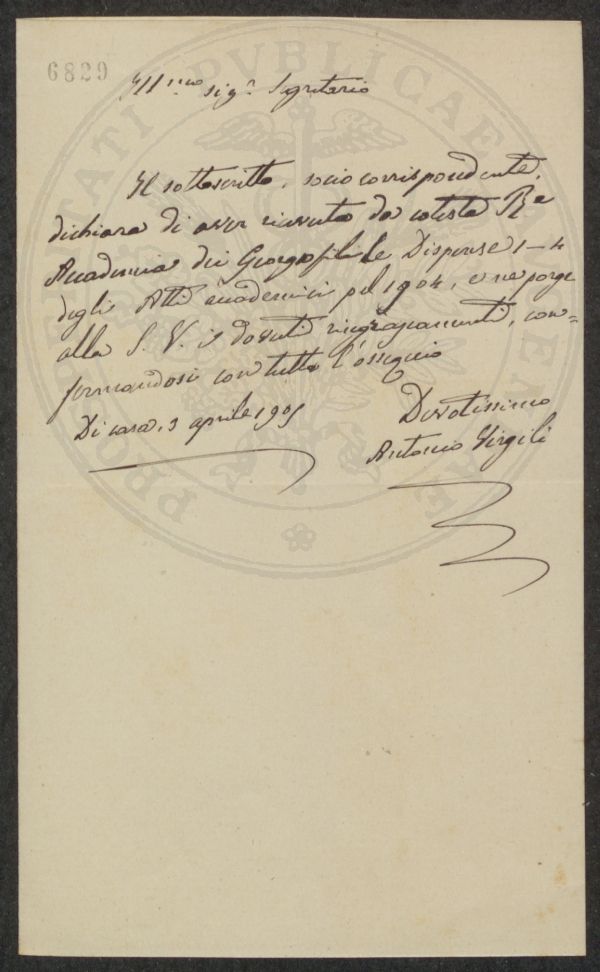 6829
Ill.mo sig.r Segretario
Il sottoscritto, socio corrispondente,
dichiara di aver ricevuto da cotesta Re
Accademia dei Georgofili le Dispense 1-4
degli Atti accademici pel 1904, e ne porge
alla S. V. i dovuti ringraziamenti, con=
fermandosi con tutto l'ossequio
Di casa, 3 aprile 1905
Devotissimo
Antonio Virgili
PROSPERITATI PVBLICAE AVGENDAE